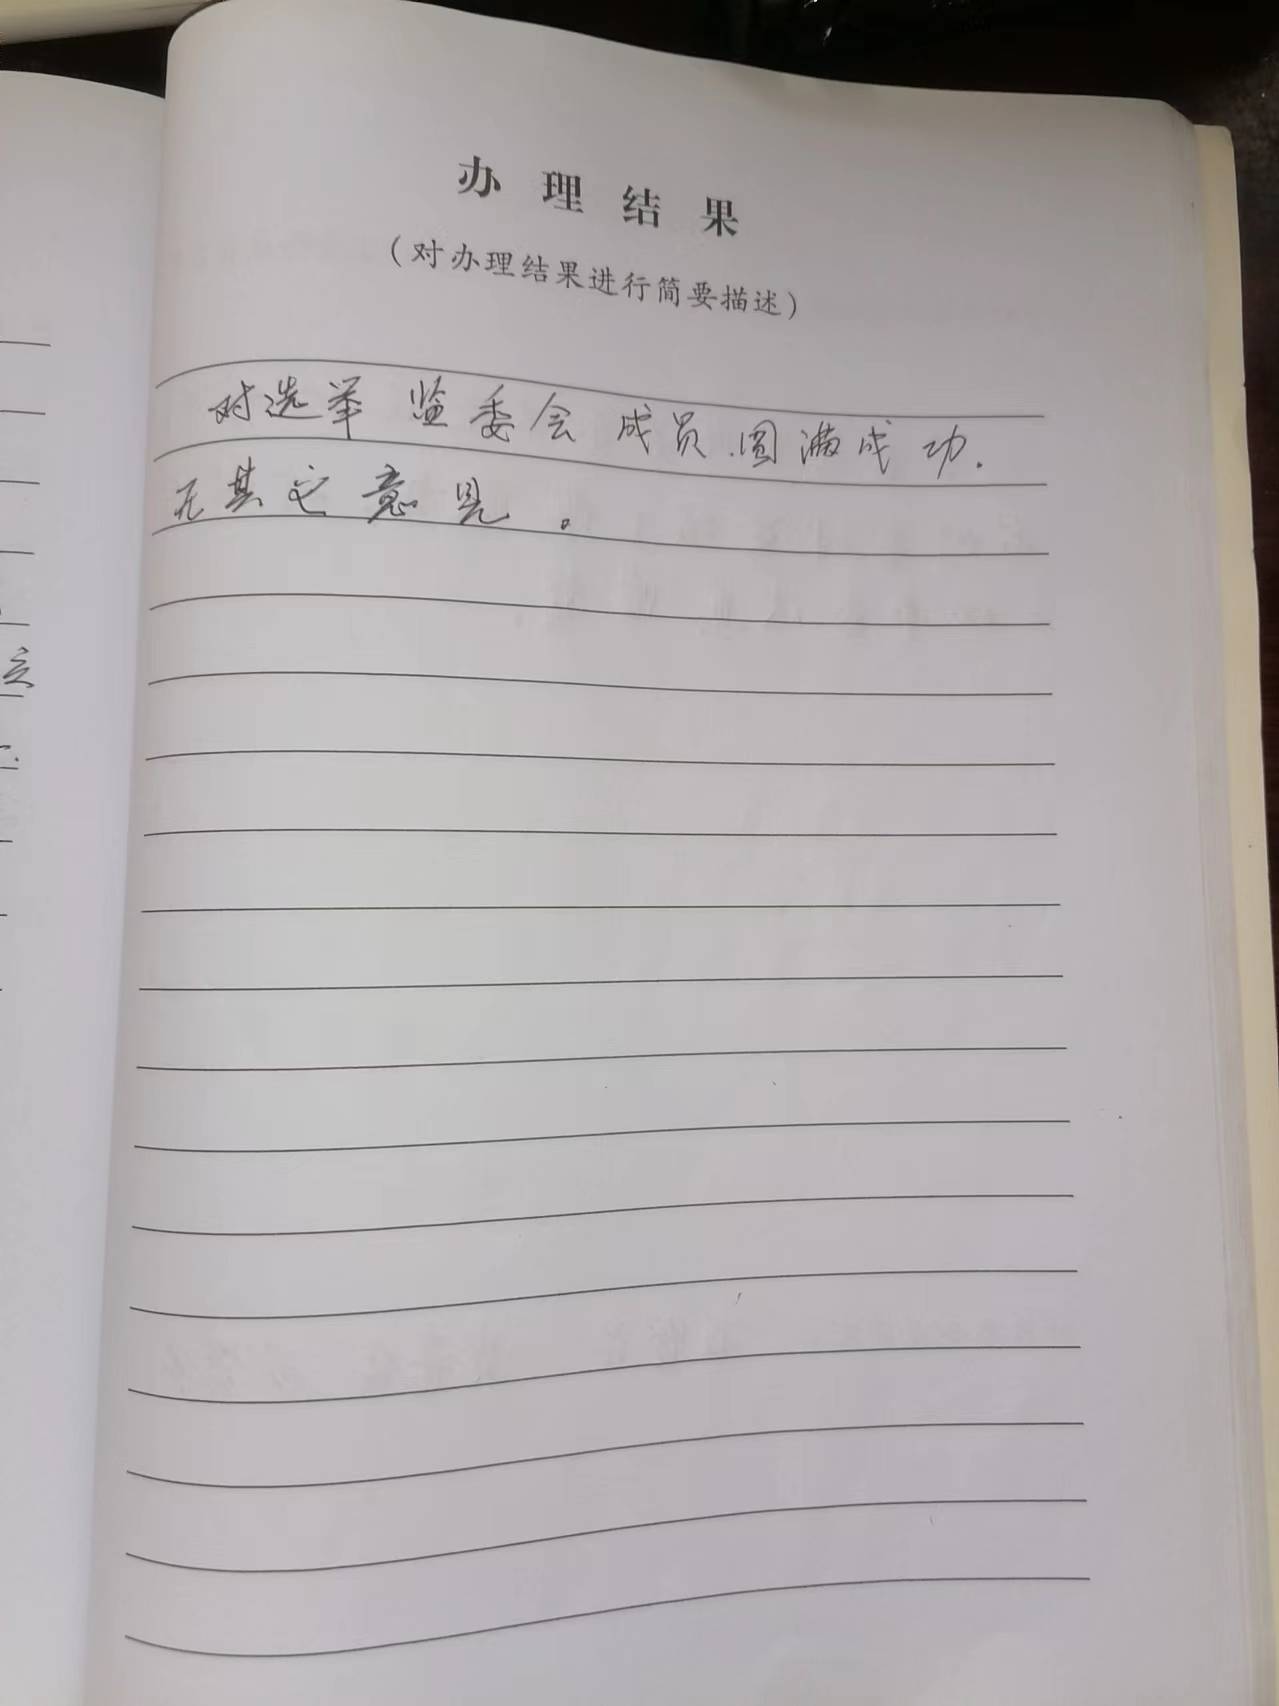 办理结果
（对办理结果进行简要描述）
对选举监委会成员.圆满成功.
无其它意见。